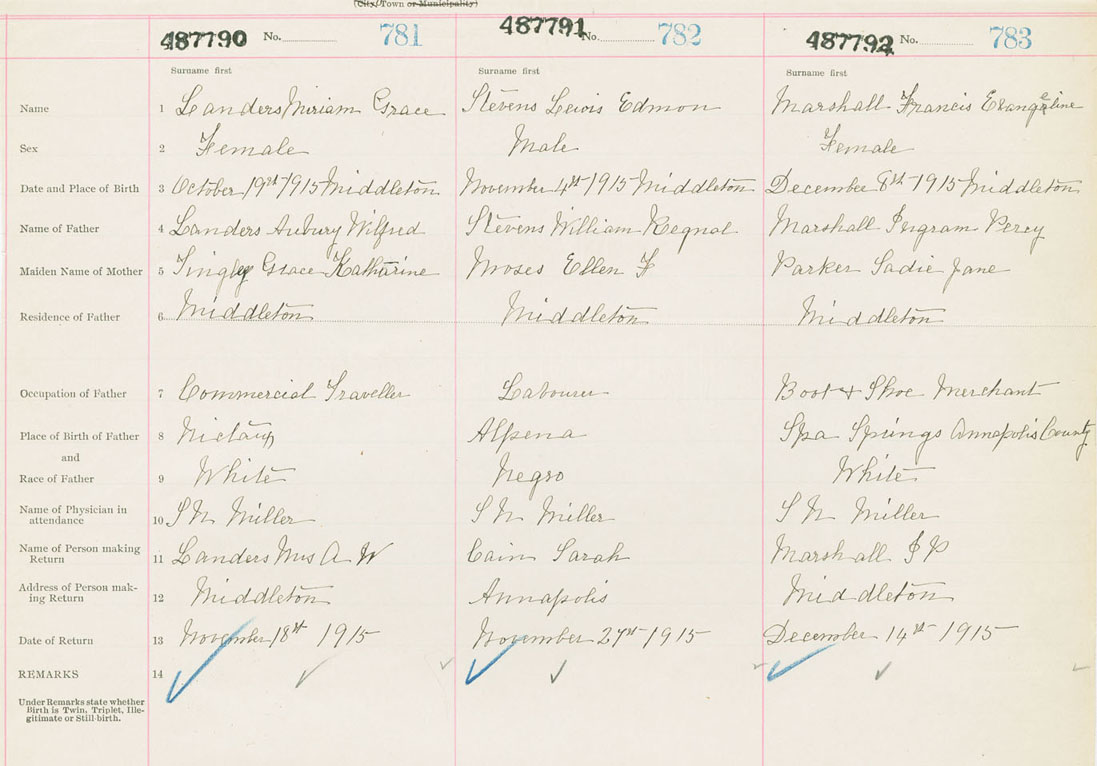 (City) Town or Municipality)
487790 No. 781 487791 No. 782 487792 No. 783
Surname first Surname first Surname first
Name 1 Landers Miriam Grace Stevens Lewis Edmon Marshall Francis Evangeline
Sex 2 Female Male Female
Date and Place of Birth 3 October 19th 1915 Middleton November 4th 1915 Middleton December 8th 1915 Middleton
Name of Father 4 Landers Aubury Wilfred Stevens William Regnol Marshall Ingram Percy
Maiden Name of Mother 5 Grace Katharine Moses Ellen F Parker Sadie Jane
Residence of Father 6 Middleton Middleton Middleton
Occupation of Father 7 Commercial Traveller Labourer Boot & Shoe Merchant
Place of Birth of Father 8 Nictaux Alpena Spa Springs Annapolis County
and
Race of Father 9 White Negro White
Name of Physician in
attendance 10 S N Miller S N Miller S N Miller
Name of Person making
Return 11 Landers Mrs A W Cain Sarah Marshall I P
Address of Person mak-
ing Return 12 Middleton Annapolis Middleton
Date of Return 13 November 18th 1915 November 27th 1915 December 14th 1915
REMARKS 14
Under Remarks state whether
Birth is Twin, Triplet, Ille-
gitimate or Still-birth.